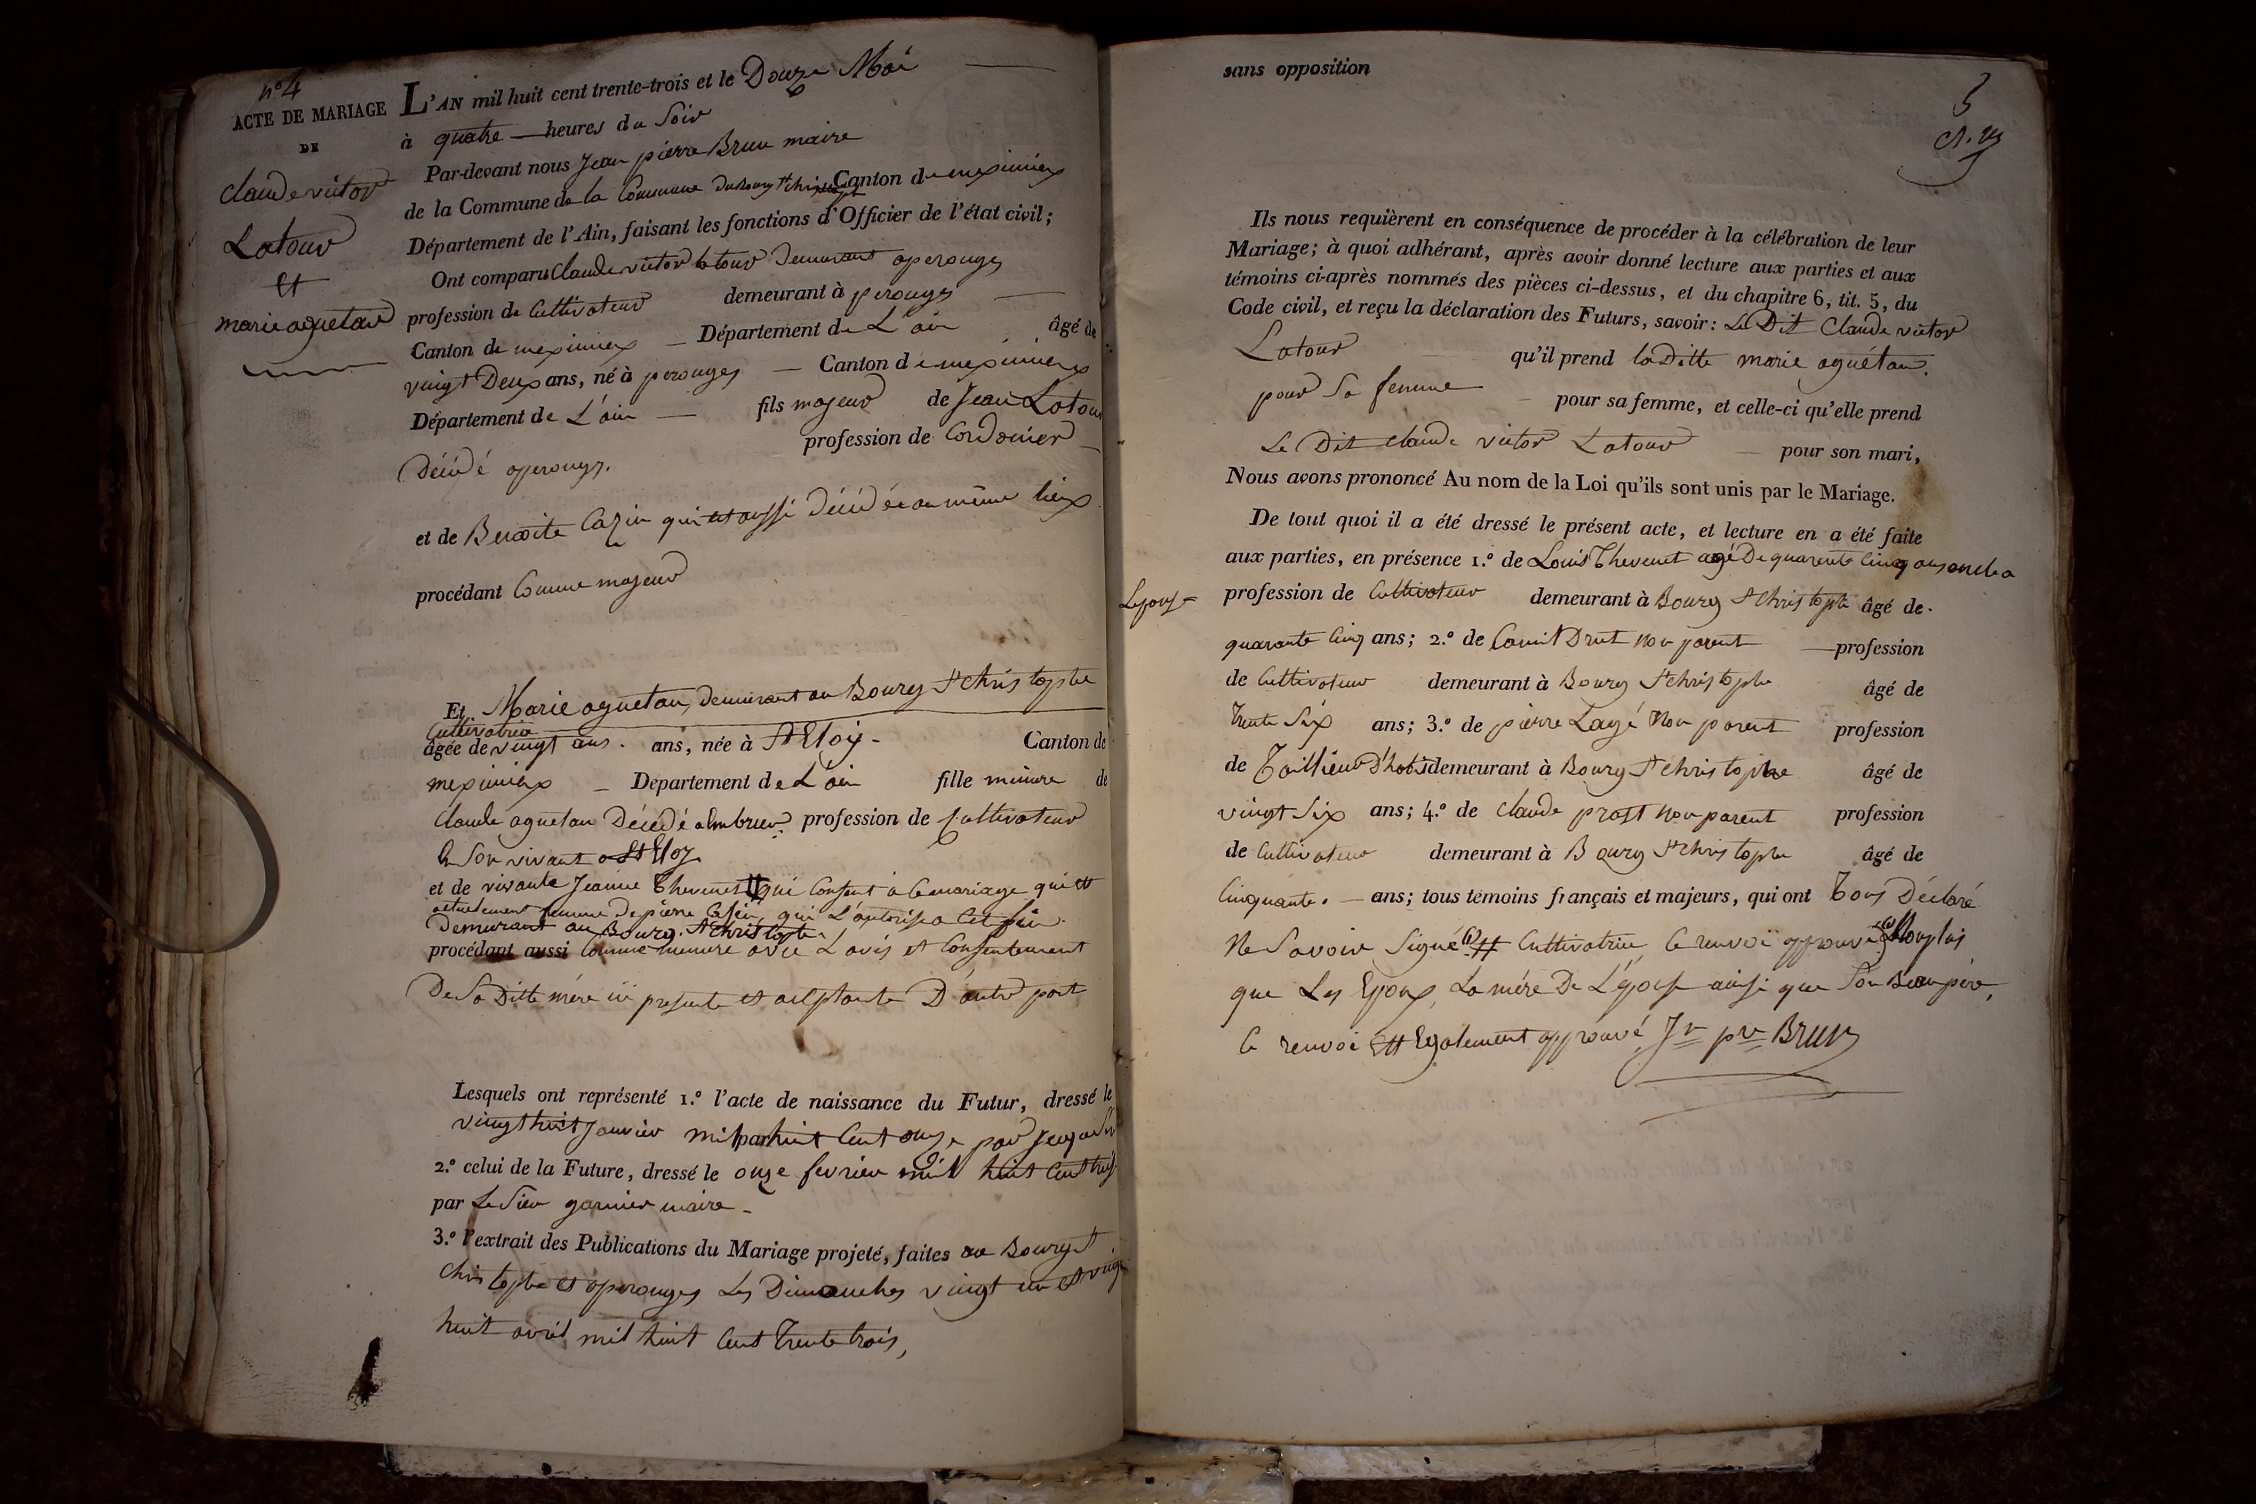 n° 4
ACTE DE MARIAGE
DE
Claude victor
Latour
et
marie aguetan
L'AN mil huit cent trente-trois et le Douze Mai
à quatre heures du Soir
Par-devant nous Jean pierre Brun maire
de la Commune de la Commune du Bourg St christophe Canton de meximieux
Département de l'Ain, faisant les fonctions d'Officier de l'état civil;
Ont comparu Claude victor latour demeurant a perouges
profession de Cultivateur demeurant à perouges
Canton de meximieux Département de L'ain âgé de
vingt Deux ans, né à perouges Canton de meximieux
Département de L'ain fils majeur de Jean Latour
profession de Cordonier
Décédé a perouges.
et de Benoite Cazin qui est aussi décédée au même lieux
procédant Comme majeur
Et Marie aguetan, demeurant au Bourg St christophe
Cultivatrice
âgée de vingt ans. ans, née à St Eloy Canton de
meximieux Département de L'ain fille mineure de
Claude aguetan Décédé a profession de Cultivateur
de Son vivant a St Eloy
et de vivante Jeanne Thevenet # qui Consent a ce mariage qui est
actuelement femme de pierre qui L'autorise a cet fin.
Demeurant au Bourg St christophe
procédant aussi Comme mineure avec L'avis et Consentement
De Sa Ditte mère ici presente et aceptante D'autre part
Lesquels ont représenté 1.° l'acte de naissance du Futur, dressé le
vingt huit Janvier mil huit Cent onze par
2.° celui de la Future, dressé le onze fevrier mil huit Cent
par Le Sieur garnier maire
3.° l'extrait des Publications du Mariage projeté, faites au Bourg St
Christophe et a perouges Les Dimanches vingt un et vingt
huit avril mil huit Cent Trente trois,
sans opposition
Ils nous requièrent en conséquence de procéder à la célébration de leur
Mariage; à quoi adhérant, après avoir donné lecture aux parties et aux
témoins ci-après nommés des pièces ci-dessus, et du chapitre 6, tit. 5, du
Code civil, et reçu la déclaration des Futurs, savoir: Le Dit Claude victor
Latour qu'il prend la Ditte marie aguétan.
pour Sa femme pour sa femme, et celle-ci qu'elle prend
Le Dit claude victor Latour pour son mari,
Nous avons prononcé Au nom de la Loi qu'ils sont unis par le Mariage.
De tout quoi il a été dressé le présent acte, et lecture en a été faite
aux parties, en présence 1.° de Louis Thevenet agé De quarente Cinq ans oncle a
Lepouse
profession de Cultivateur demeurant à Bourg St Christophe âgé de
quarante Cinq ans; 2.° de Drut non parent profession
de Cultivateur demeurant à Bourg St christophe âgé de
trente Six ans; 3.° de pierre Lagé Non parent profession
de Taillieur D'habits demeurant à Bourg St christophe âgé de
vingt Six ans; 4.° de claude prost non parent profession
de Cultivateur demeurant à Bourg St christophe âgé de
Cinquante. ans; tous témoins français et majeurs, qui ont Tous Déclaré
Ne Savoir Signé # Cultivatrice, Ce renvoi approuvé Non plus
que Les Epoux, La mére De L'épouse ainsi que Son Beau père,
Ce renvoi # Egalement approuvé Jn pre Brun